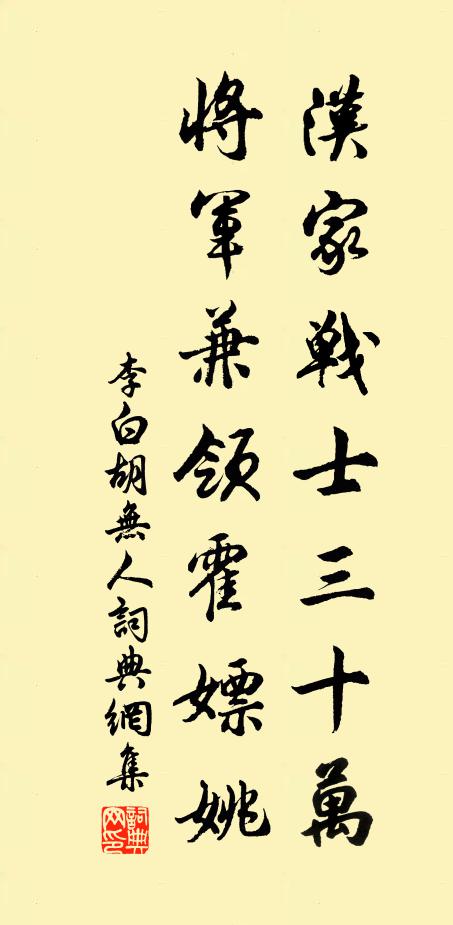 漢家戰士三十萬
將軍兼領霍嫖姚
李白胡無人詞典網集
詞典網印